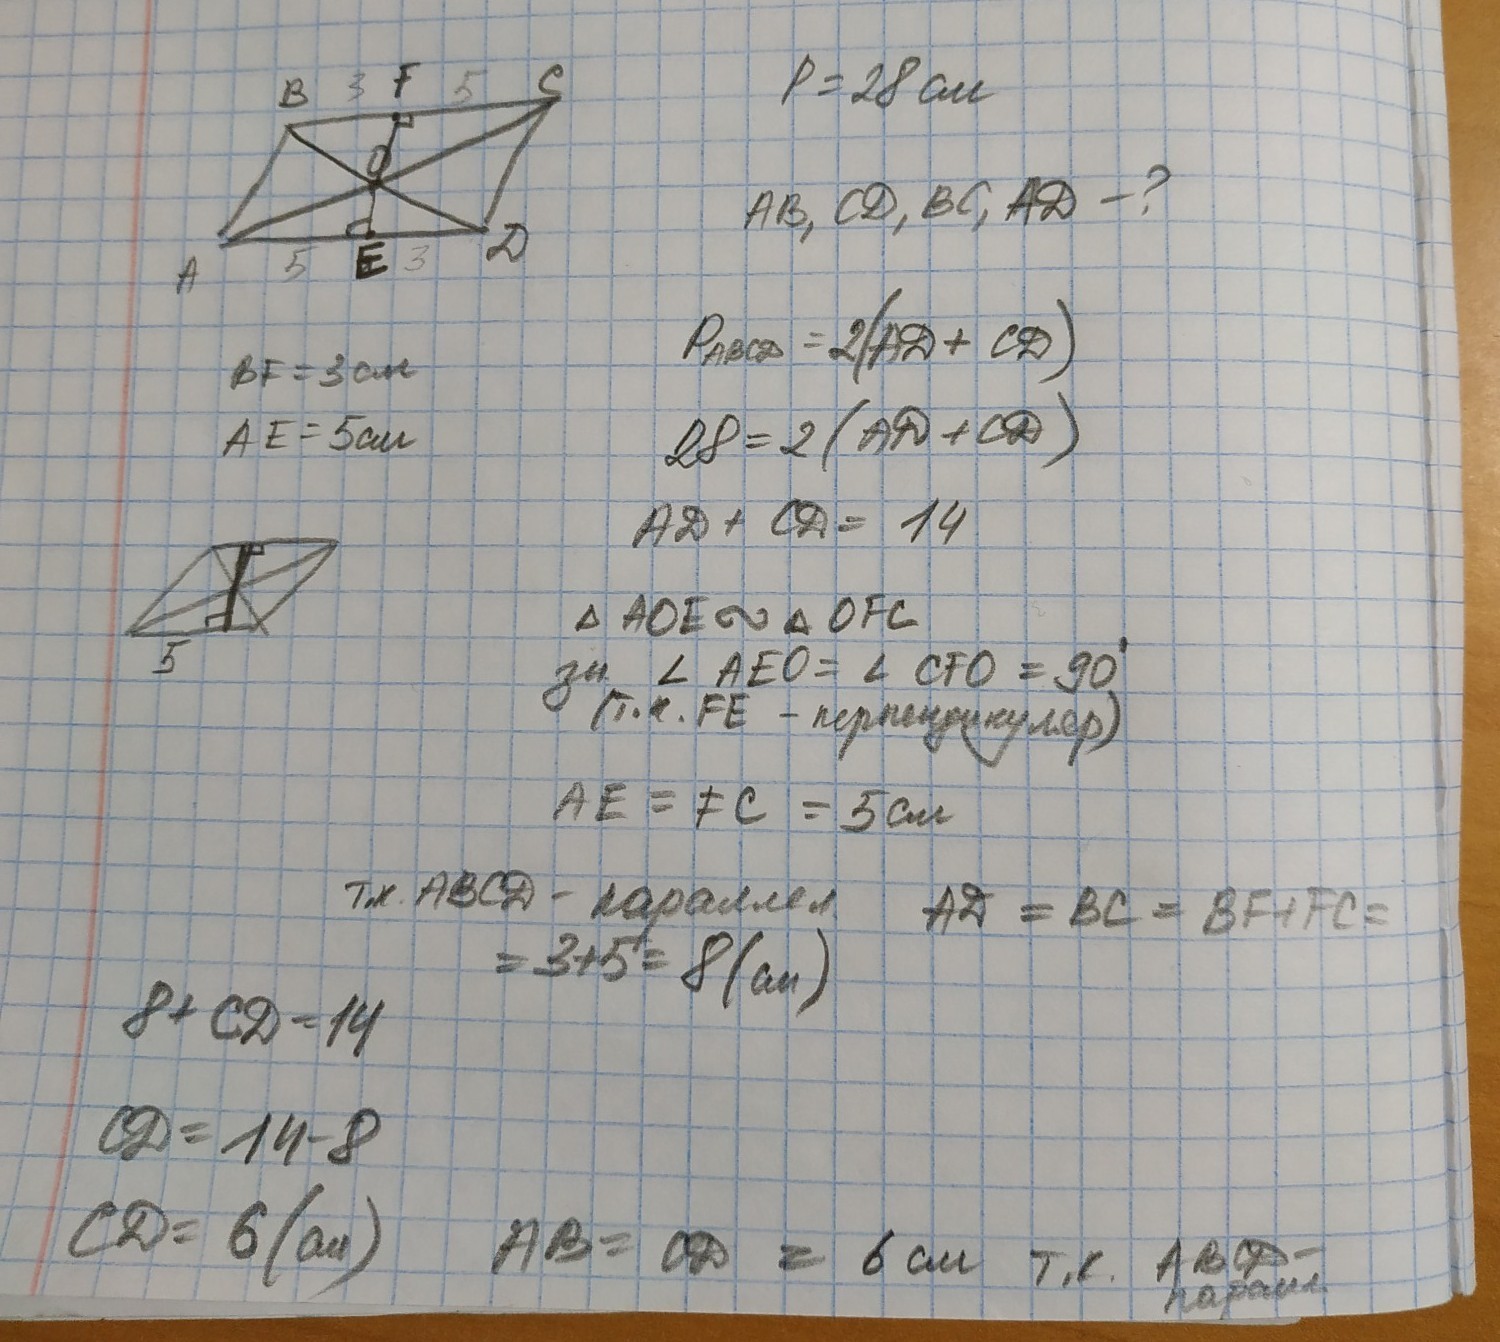 B 3 F 5 C
O
A 5 E 3 D
P = 28 см
AB, CD, BC, AD - ?
BF = 3 см
AE = 5 см
P ABCD = 2(AD + CD)
28 = 2 (AD + CD)
AD + CD = 14
5
△ AOE ∾ △ OFC
зн. ∠ AEO = ∠ CFO = 90°
(т.к. FE - перпендикуляр)
AE = FC = 5 см
т.к. ABCD - параллел. AD = BC = BF + FC =
= 3+5 = 8 (см)
8 + CD = 14
CD = 14 - 8
CD = 6 (см) AB = CD = 6 см т.к. ABCD -
паралл.